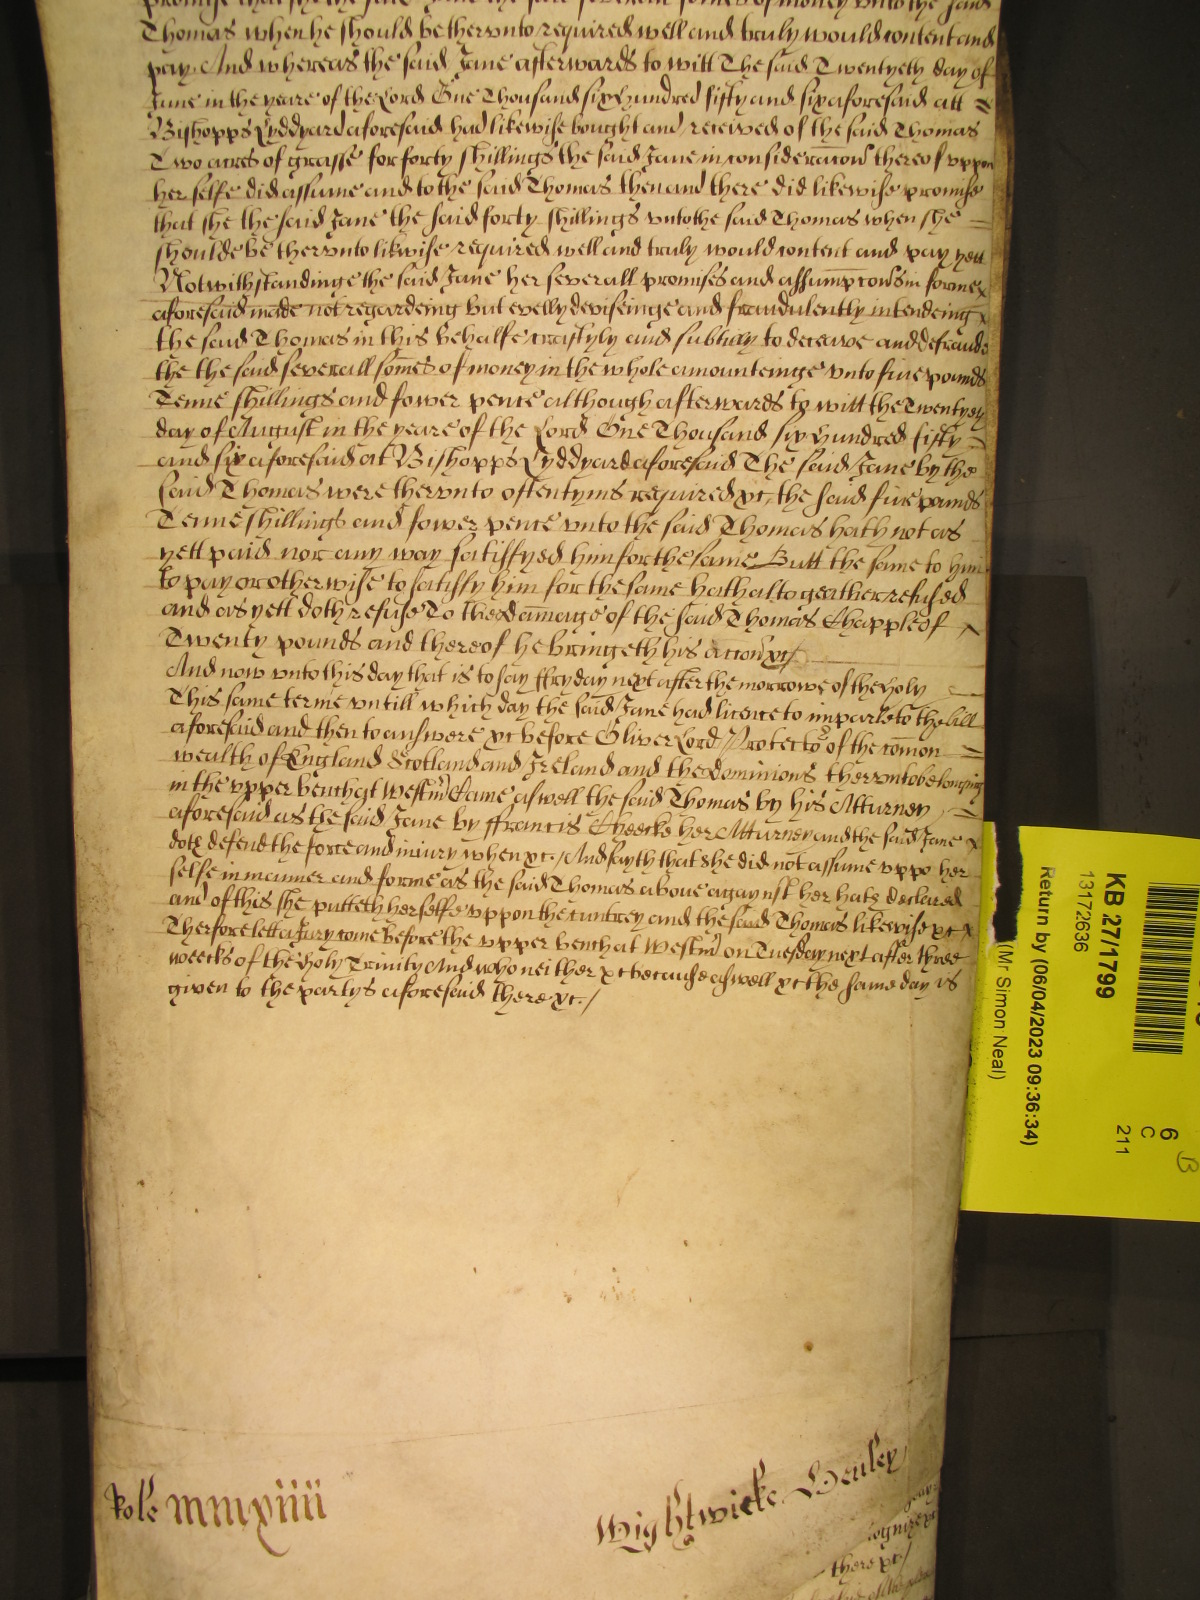 promise that she the said Jane the said severall somes of money vnto the said
Thomas when he should be thervnto required well and truly would content and
pay. And whereas the said Jane afterwards to witt The said Twentyety day of
June in the yeare of the Lord One Thousand six Hundred fifty and six aforesaid att
Bishopps Lyddyard aforesaid had likewise bought and received of the said Thomas
Two acres of grasse for forty shillings the said Jane in consideracion thereof vppon
her selfe did assume and to the said Thomas then and there did likewise promise
that she the said Jane the said forty shillings vnto the said Thomas when she
shoulde be thervnto likwise required well and truly would content and pay yett
Notwithstandinge the said Jane her severall promises and assumpcons in forme
aforesaid made not regardeing but evelly deviseinge and fraudulently intendeing
the said Thomas in this behalfe craftyly and subtilly to deceave and defraude
the the said severall somes of money in the whole amounteinge vnto five pounds
Tenne shillings and fower pence although afterwards to witt the Twentyety
day of August in the yeare of the Lord One Thousand six Hundred fifty
and six aforesaid at Bishopps Lyddyard aforesaid The said Jane by the
said Thomas were thervnto oftentyms required xc, the said five pounds
Tenne shillings and fower pence vnto the said Thomas hath not as
yett paid nor any way satisfyed him for the same Butt the same to him
to pay or otherwise to satisfy him for the same hath altogeather refused
and as yett doth refuse To the damage of the said Thomas Chapple of
Twenty pounds and thereof he bringeth his accon xc/
And now vnto this day that is to say ffryday next after the morrowe of the Holy
This same terme vntill which day the said Jane had licence to imparle to the bill
aforesaid and then to answere xc before Oliver Lord Protector of the comon
wealth of England Scotland and Ireland and the dominions thervnto belonging
in the vpper bench at Westmr Came aswell the said Thomas by his Atturney
aforesaid as the said Jane by ffrancis Cheecke her Atturney and the said Jane
doth defend the force and injury when xc. And sayth that she did not assume vppo her
selfe in manner and forme as the said Thomas above agaynst her hath declared
and of this she putteth herselfe vppon the cuntrey and the said Thomas likewise xc
Therfore lett a Jury come before the vpper bench at Westmr on Tuesday next after three
weecks of the Holy Trinity And who neither xc because aswell xc the same day is
given to the partys aforesaid there xc./
Role mmxiiii
Wightwicke Henley
cognize xc
there xc/
KB 27/1799
13172636
Return by (06/04/2023 09:36:34)
(Mr Simon Neal)
6
C
211
B